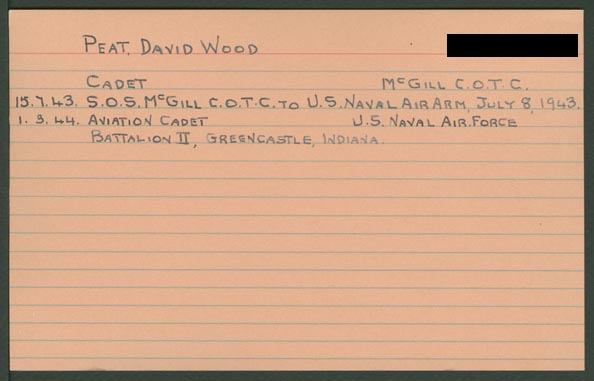 PEAT, DAVID WOOD
CADET McGILL C.O.T.C.
15.7.43. S.O.S. McGILL C.O.T.C. TO U.S. NAVAL AIR ARM, JULY 8, 1943.
1. 3. 44. AVIATION CADET U.S. NAVAL AIR FORCE
BATTALION II, GREENCASTLE, INDIANA.